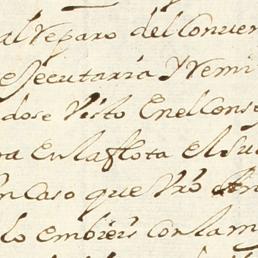 al reparo del Conven
e Secutaria Y remi
dose Visto En el Conse
ra En la flota el Su
n Caso que Vro
lo embieis Con la m